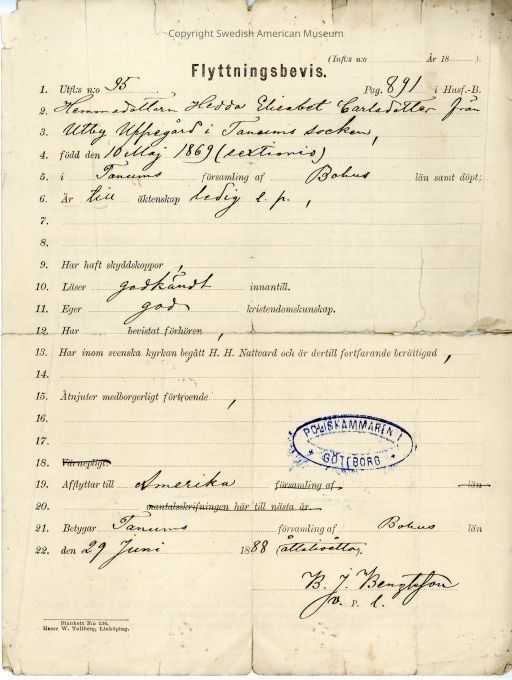 Copyright Swedish American Museum
(Inflt: n:o År 18 ).
Flyttningsbevis.
1. Utflt: n:o 95 Pag. 891 i Husf.-B.
2. Hemmadottern Hedda Elisabet Carlsdotter från
3. Utby Uppegård i Tanums socken,
4. född den 10 Maj 1869 (sextionio)
5. i Tanums församling af Bohus län samt döpt;
6. Är till äktenskap ledig s. p.,
7.
8.
9. Har haft skyddskoppor,
10. Läser godkändt innantill.
11. Eger god kristendomskunskap.
12. Har bevistat förhören,
13. Har inom svenska kyrkan begått H. H. Nattvard och är dertill fortfarande berättigad,
14.
15. Åtnjuter medborgerligt förtroende,
16.
17.
POLISKAMMAREN I GÖTEBORG
18. Värnepligt.
19. Afflyttar till Amerika församling af län
20. mantalsskrifningen här till nästa år.
21. Betygar Tanums församling af Bohus län
22. den 29 Juni 1888 (åttatioåtta).
B. J. Bengtsson
v. P. l.
Blankett N:o 136.
W. Tullberg, Linköping.